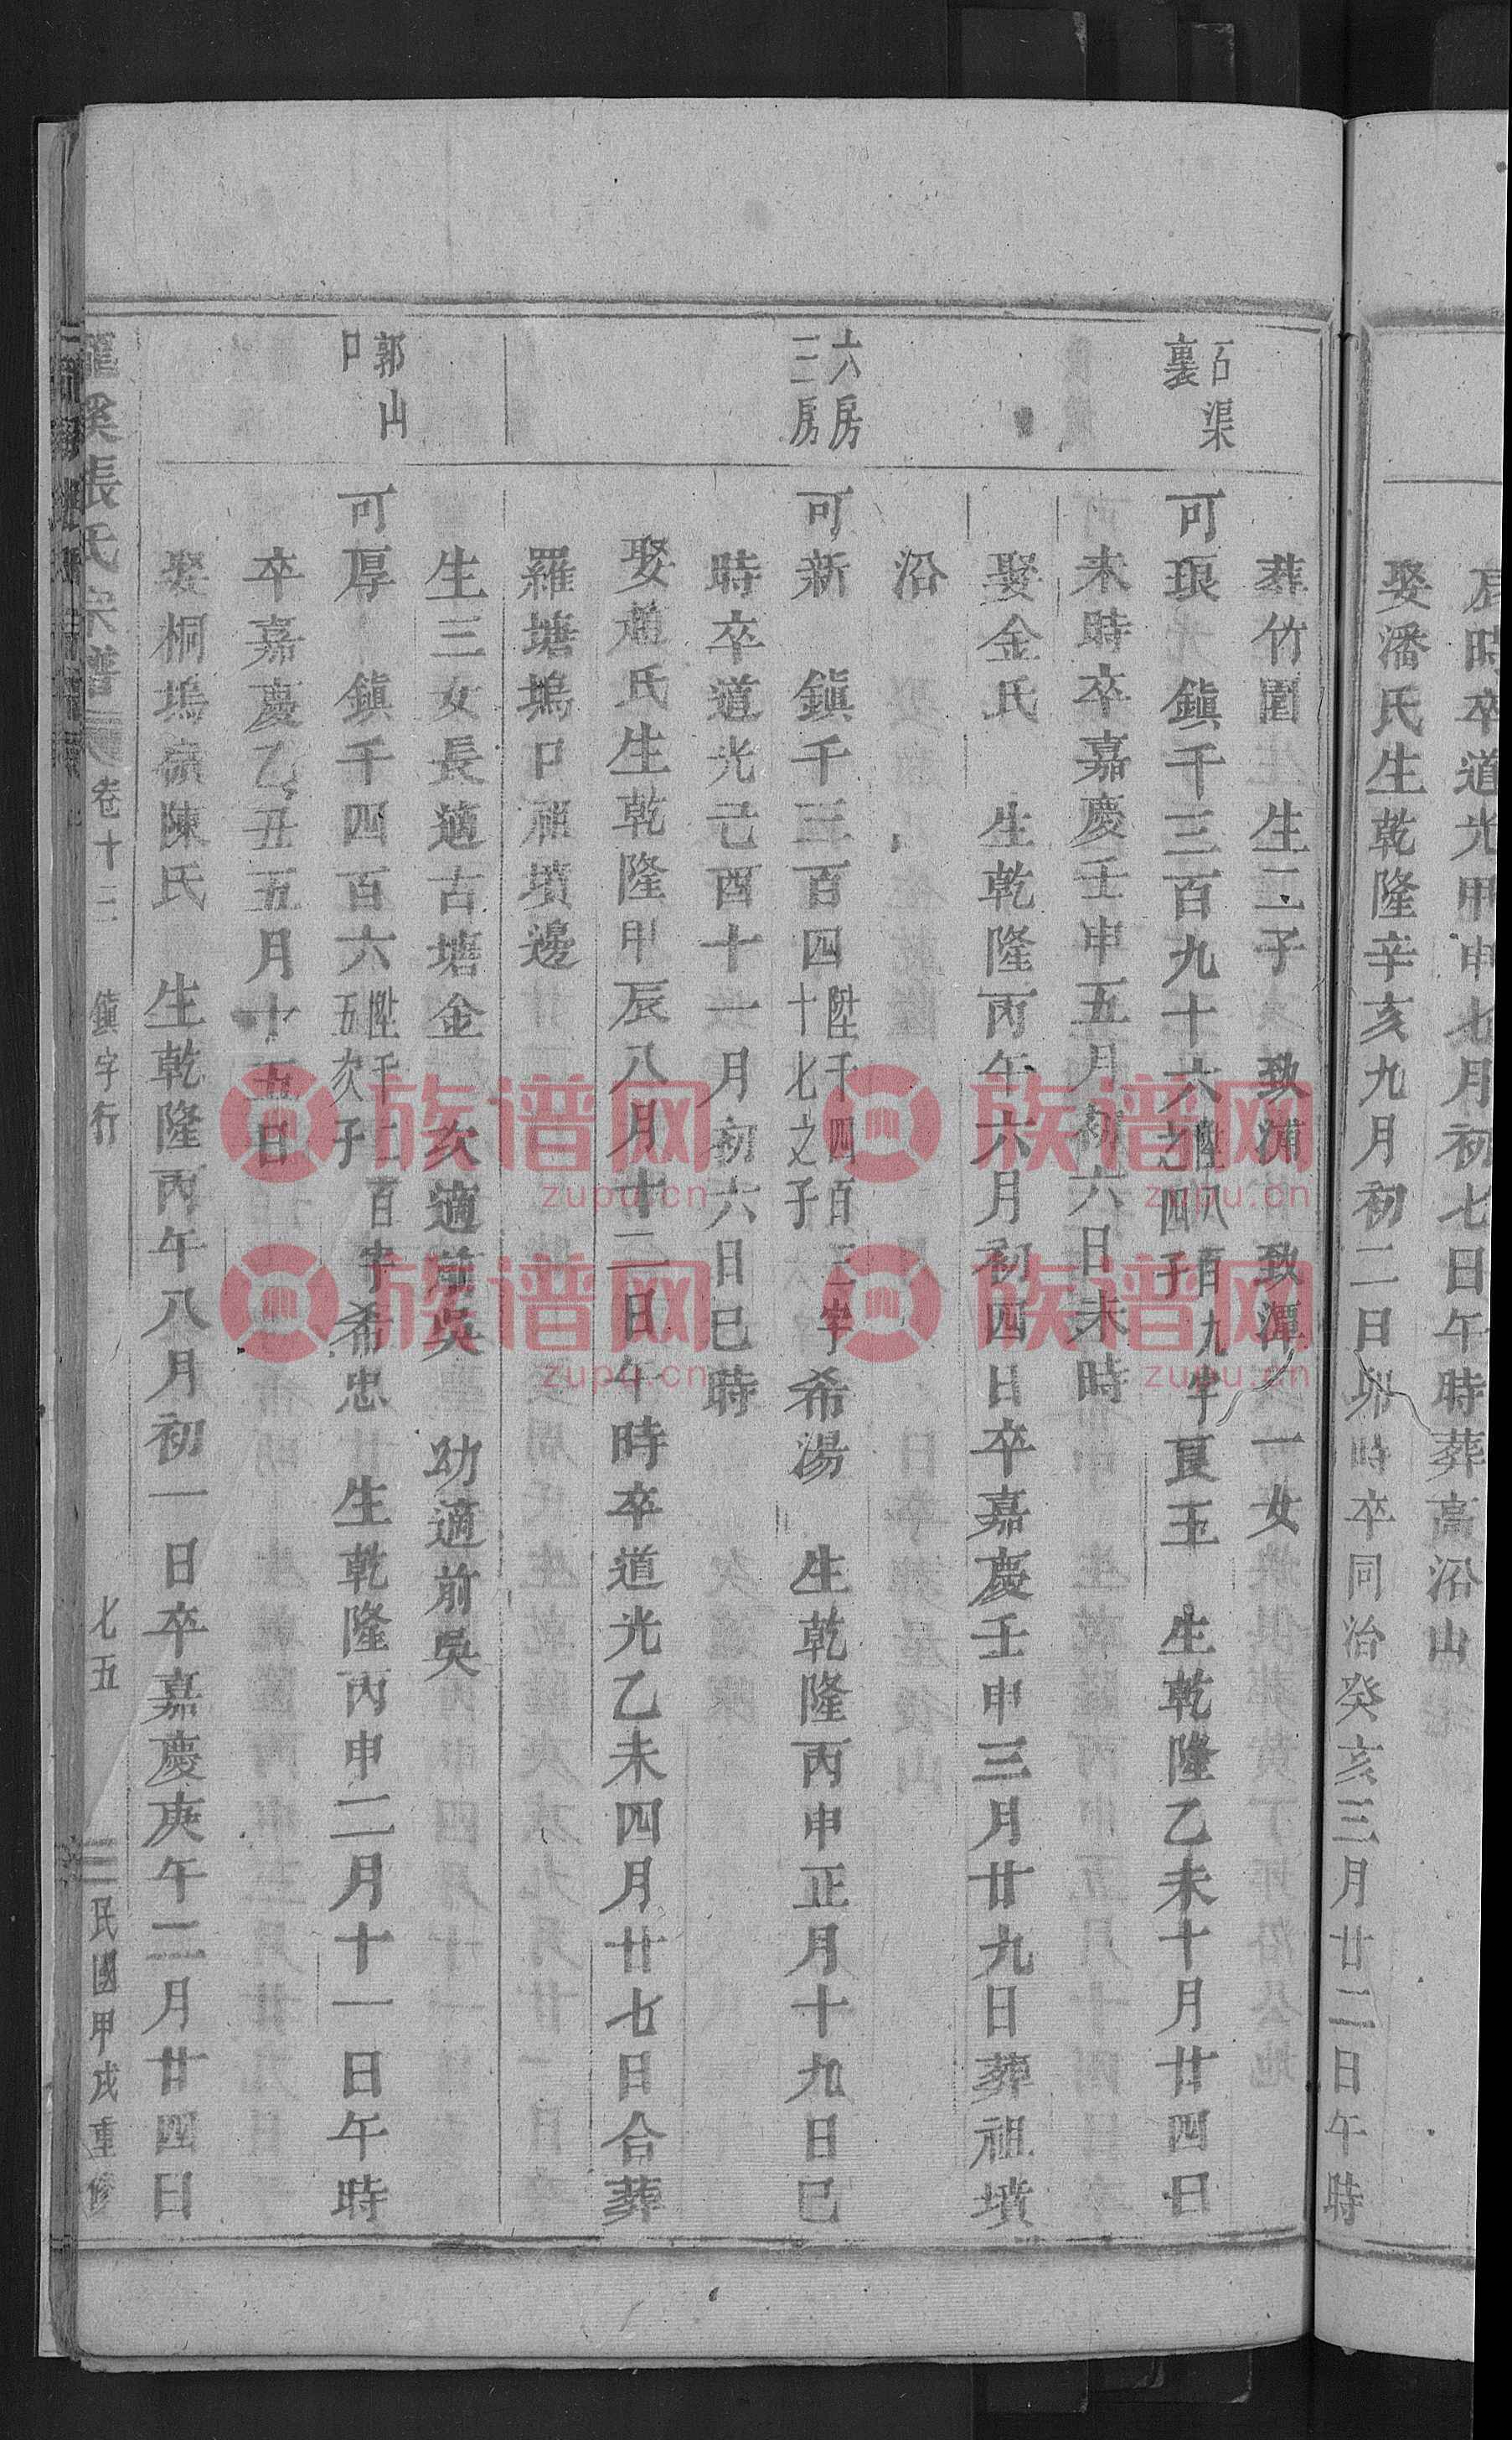 辰時卒道光甲申七月初七日午時葬高沿山
娶潘氏生乾隆辛亥九月初二日卯時卒同治癸亥三月廿二日午時
葬竹園 生二子 致浦 致潭 一女
石渠
裏
可琅 鎭千三百九十六
陞八百九
之四子
字
艮玉 生乾隆乙未十月廿四日
未時卒嘉慶壬申五月初六日未時
娶金氏 生乾隆丙午六月初四日卒嘉慶壬申三月廿九日葬祖墳
沿
六房
三房
可新 鎭千三百四
陞千四百三
十七之子
字
希湯 生乾隆丙申正月十九日巳
時卒道光己酉十一月初六日巳時
娶趙氏生乾隆甲辰八月十二日午時卒道光乙未四月廿七日合葬
羅塘塢口祖墳邊
生三女長適古塘金 次適前吳 幼適前吳
郭山
口
可厚 鎭千四百六
陞千二百
五次子
字
希忠 生乾隆丙申二月十一日午時
卒嘉慶乙丑五月十五日
娶桐塢嶺陳氏 生乾隆丙午八月初一日卒嘉慶庚午二月廿四日
龍溪張氏宗譜 卷十三 鎭字行 七五 民國甲戌重修
族谱网
zupu.cn
族谱网
zupu.cn
族谱网
zupu.cn
族谱网
zupu.cn